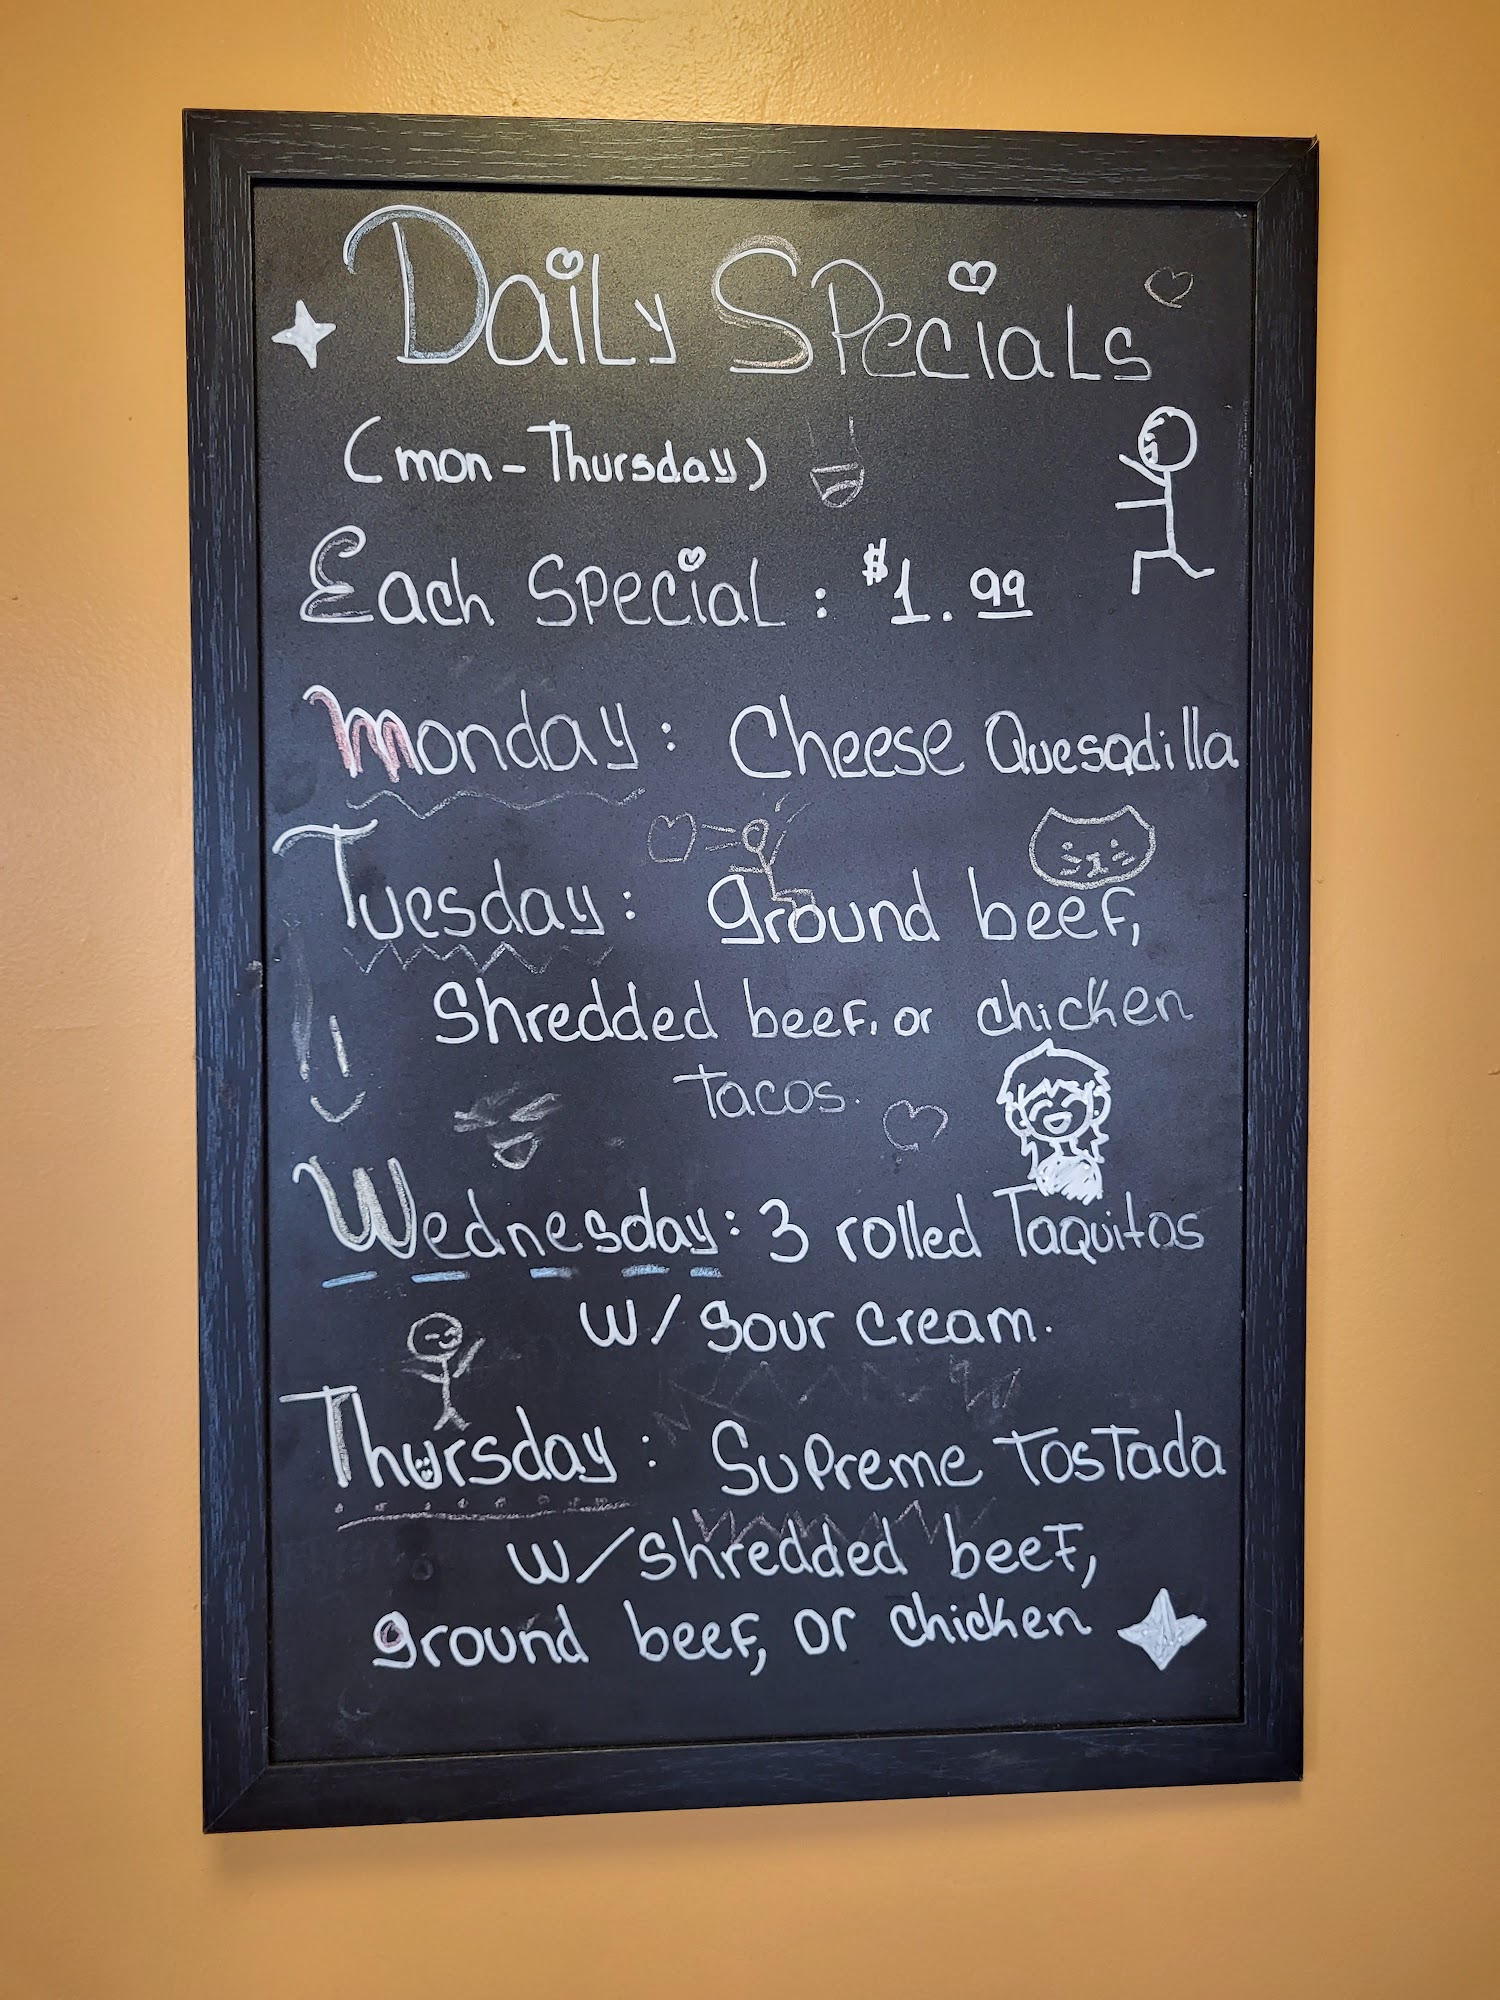 Daily Specials
(mon-Thursday)
Each Special: $1.99
Monday: Cheese Quesadilla
Tuesday: ground beef,
Shredded beef, or chicken
Tacos.
Wednesday: 3 rolled Taquitos
w/ sour cream.
Thursday: Supreme Tostada
w/shredded beef,
ground beef, or chicken